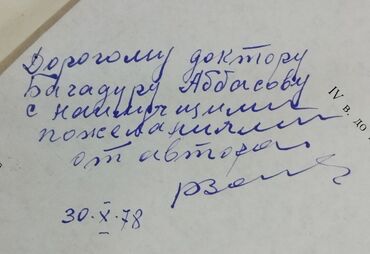 Дорогому доктору
Багадуру Аббасову
с наилучшими
пожеланиями
от автора
30·X·78
IV в. до